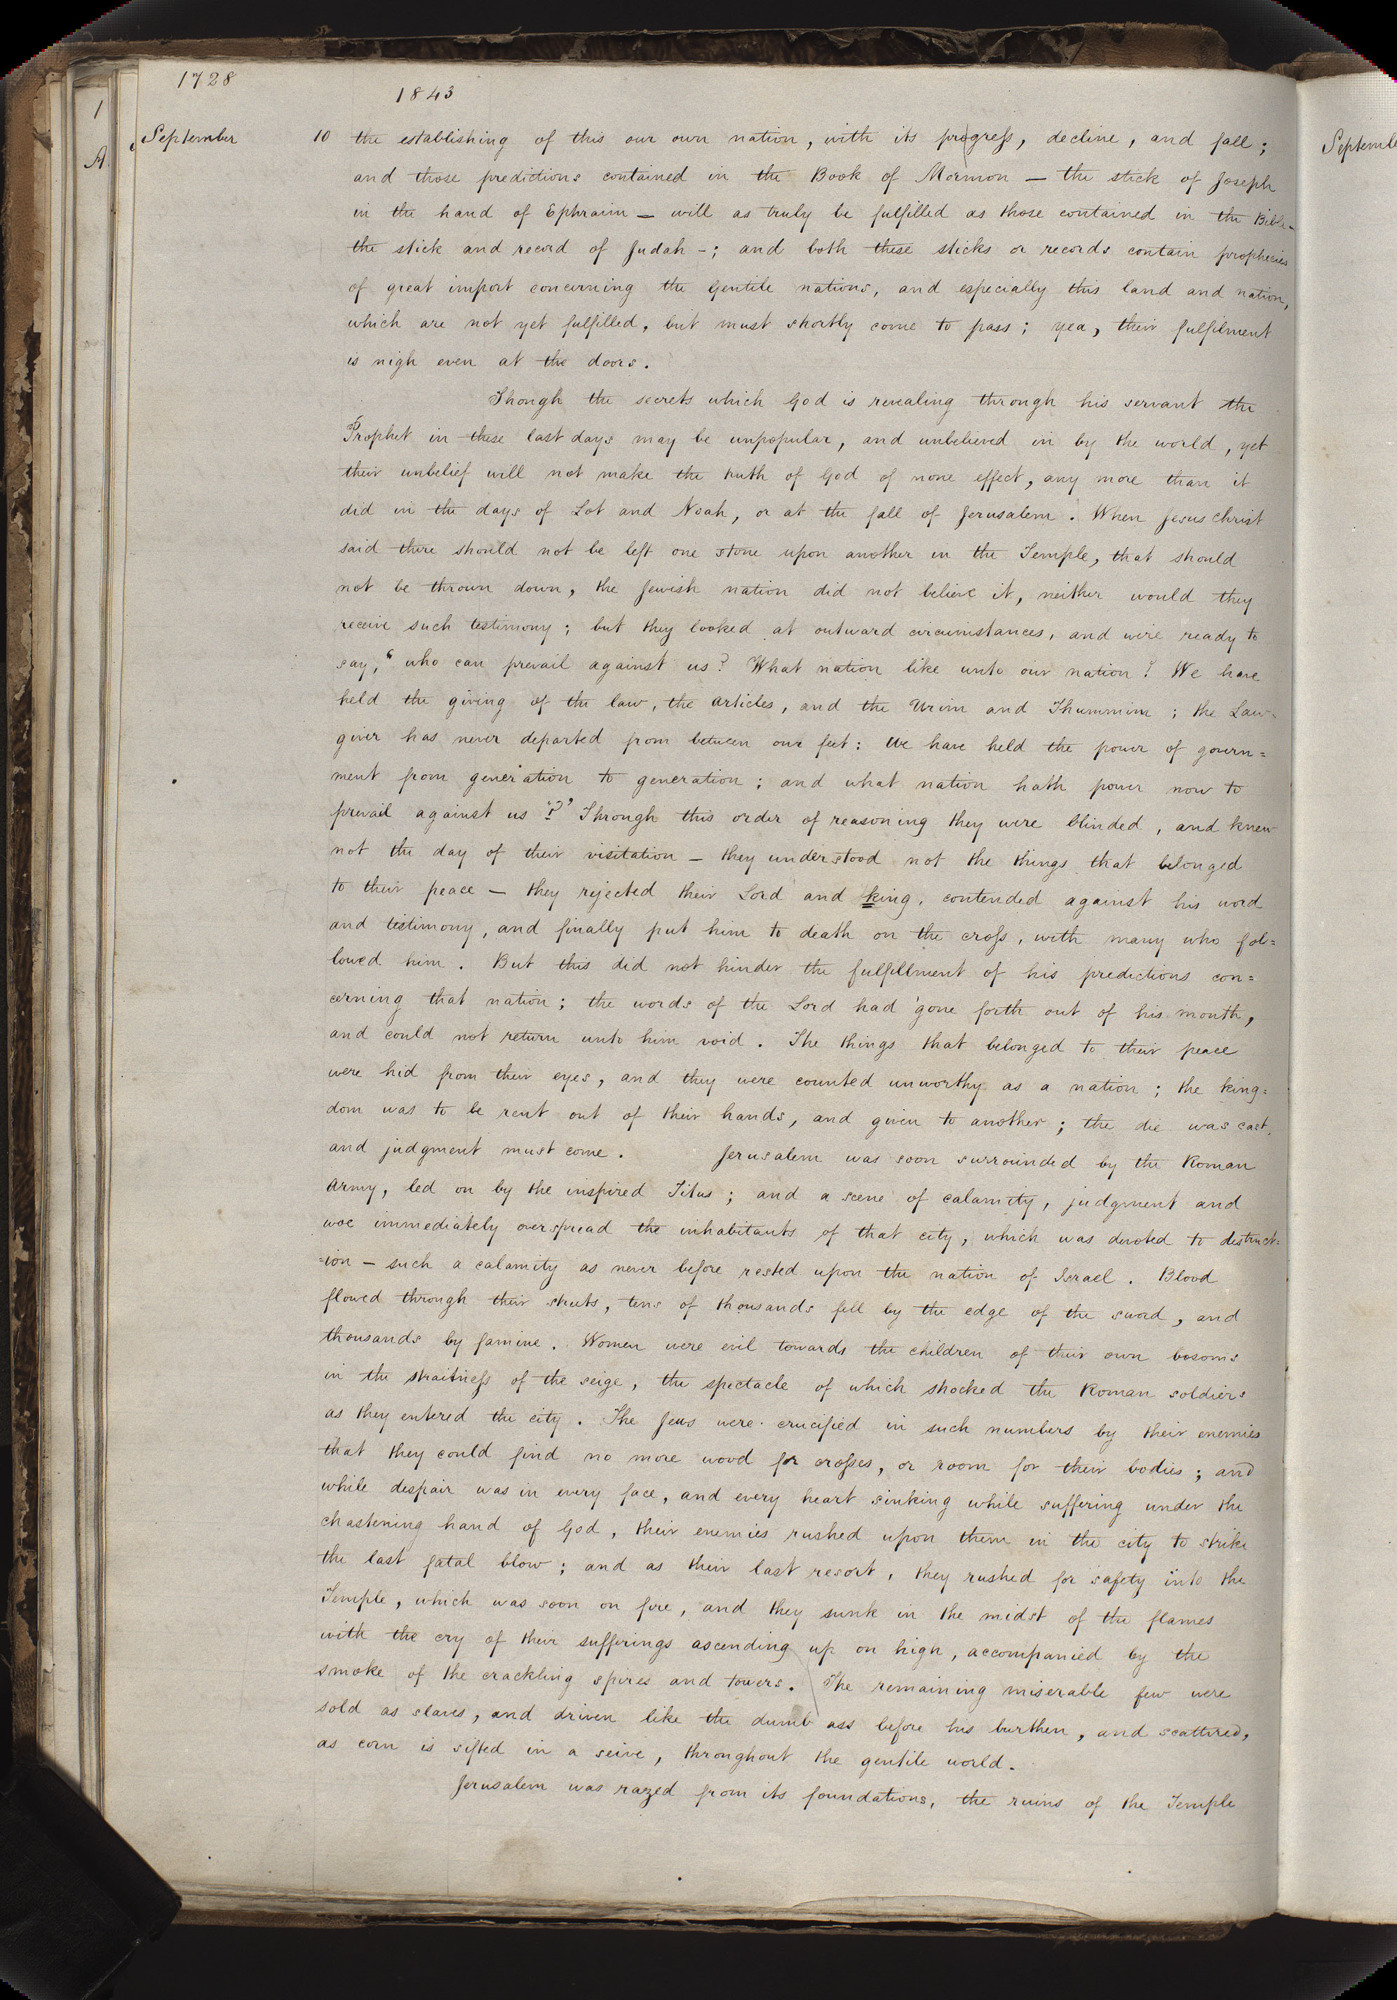 1728
1843
1
A.
September 10 the establishing of this our own nation, with its progress, decline, and fall;
Septembe
and those predictions contained in the Book of Mormon — the stick of Joseph
in the hand of Ephraim — will as truly be fulfilled as those contained in the Bible—
the stick and record of Judah –; and both these sticks or records contain prophecies
of great import concerning the Gentile nations, and especially this land and nation,
which are not yet fulfilled, but must shortly come to pass; yea, their fulfilment
is nigh even at the doors.
Though the secrets which God is revealing through his servant the
Prophet in these last days may be unpopular, and unbelieved in by the world, yet
their unbelief will not make the truth of God of none effect, any more than it
did in the days of Lot and Noah, or at the fall of Jerusalem. When Jesus Christ
said there should not be left one stone upon another in the Temple, that should
not be thrown down, the Jewish nation did not believe it, neither would they
receive such testimony; but they looked at outward circumstances, and were ready to
say, "who can prevail against us? What nation like unto our nation? We have
held the giving of the law, the articles, and the Urim and Thummim; the Law=
giver has never departed from between our feet: We have held the power of govern=
ment from generation to generation; and what nation hath power now to
prevail against us?" Through this order of reasoning they were blinded, and knew
not the day of their visitation — they understood not the things that belonged
to their peace — they rejected their Lord and king, contended against his word
and testimony, and finally put him to death on the cross, with many who fol=
lowed him. But this did not hinder the fulfillment of his predictions con=
cerning that nation; the words of the Lord had gone forth out of his mouth,
and could not return unto him void. The things that belonged to their peace
were hid from their eyes, and they were counted unworthy as a nation; the king=
dom was to be rent out of their hands, and given to another; the die was cast,
and judgment must come. Jerusalem was soon surrounded by the Roman
Army, led on by the inspired Titus; and a scene of calamity, judgment and
woe immediately overspread the inhabitants of that city, which was devoted to destruct=
=ion — such a calamity as never before rested upon the nation of Israel. Blood
flowed through their streets, tens of thousands fell by the edge of the sword, and
thousands by famine. Women were evil towards the children of their own bosoms
in the straitness of the seige, the spectacle of which shocked the Roman soldiers
as they entered the city. The Jews were crucified in such numbers by their enemies
that they could find no more wood for crosses, or room for their bodies; and
while despair was in every face, and every heart sinking while suffering under the
chastening hand of God, their enemies rushed upon them in the city to strike
the last fatal blow; and as their last resort, they rushed for safety into the
Temple, which was soon on fire, and they sunk in the midst of the flames
with the cry of their sufferings ascending up on high, accompanied by the
smoke of the crackling spires and towers. The remaining miserable few were
sold as slaves, and driven like the dumb ass before his burthen, and scattered,
as corn is sifted in a seive, throughout the gentile world.
Jerusalem was razed from its foundations, the ruins of the Temple